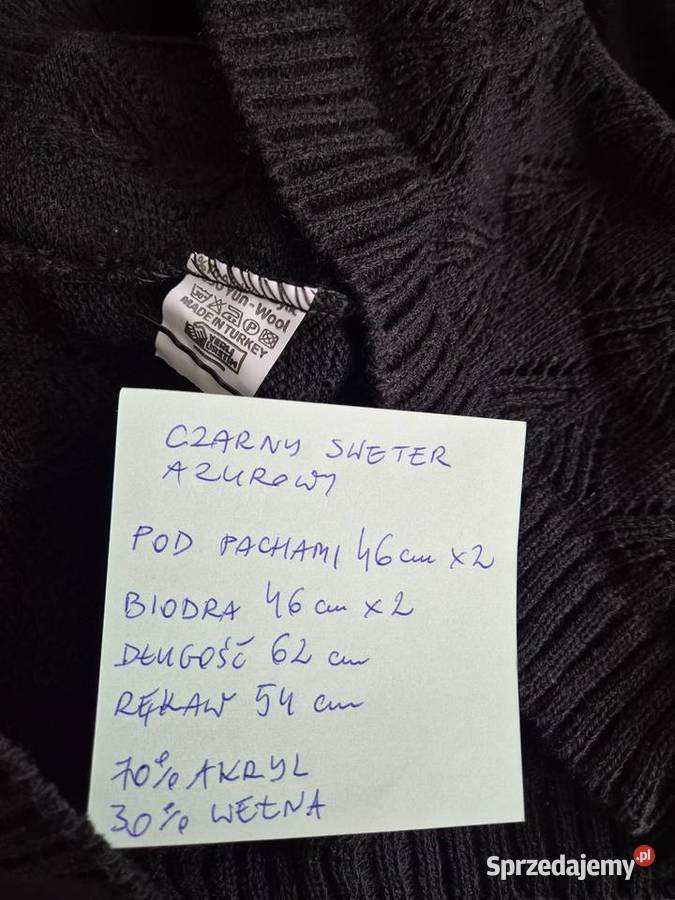 Yün - Wool
MADE IN TURKEY
YERLİ
ÜRETİM
CZARNY SWETER
AZUROWY
POD PACHAMI 46 cm x2
BIODRA 46 cm x2
DŁUGOŚĆ 62 cm
RĘKAW 54 cm
70% AKRYL
30% WEŁNA
Sprzedajemy.pl